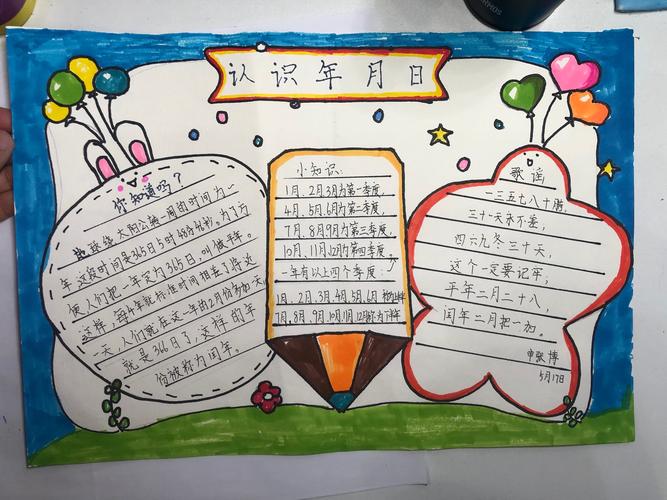 认识年月日
你知道吗？
地球绕太阳公转一周的时间为一
年,这段时间是365日5时48分46秒。为了方
便人们把一年定为365日,叫做平年。
这样,每4年就标准时间相差了将近
一天,人们就在这一年的2月份多加一天,
就是366日了,这样的年
份被称为闰年。
小知识:
1月、2月、3月为第一季度,
4月、5月、6月为第二季度,
7月、8月、9月为第三季度,
10月、11月、12月为第四季度,
一年有以上四个季度。
1月、2月、3月、4月、5月、6月 称为上半年
7月、8月、9月、10月、11月、12月称为下半年
歌谣:
一三五七八十腊,
三十一天永不差,
四六九冬三十天,
这个一定要记牢,
平年二月二十八,
闰年二月把一加。
申张博
5月17日